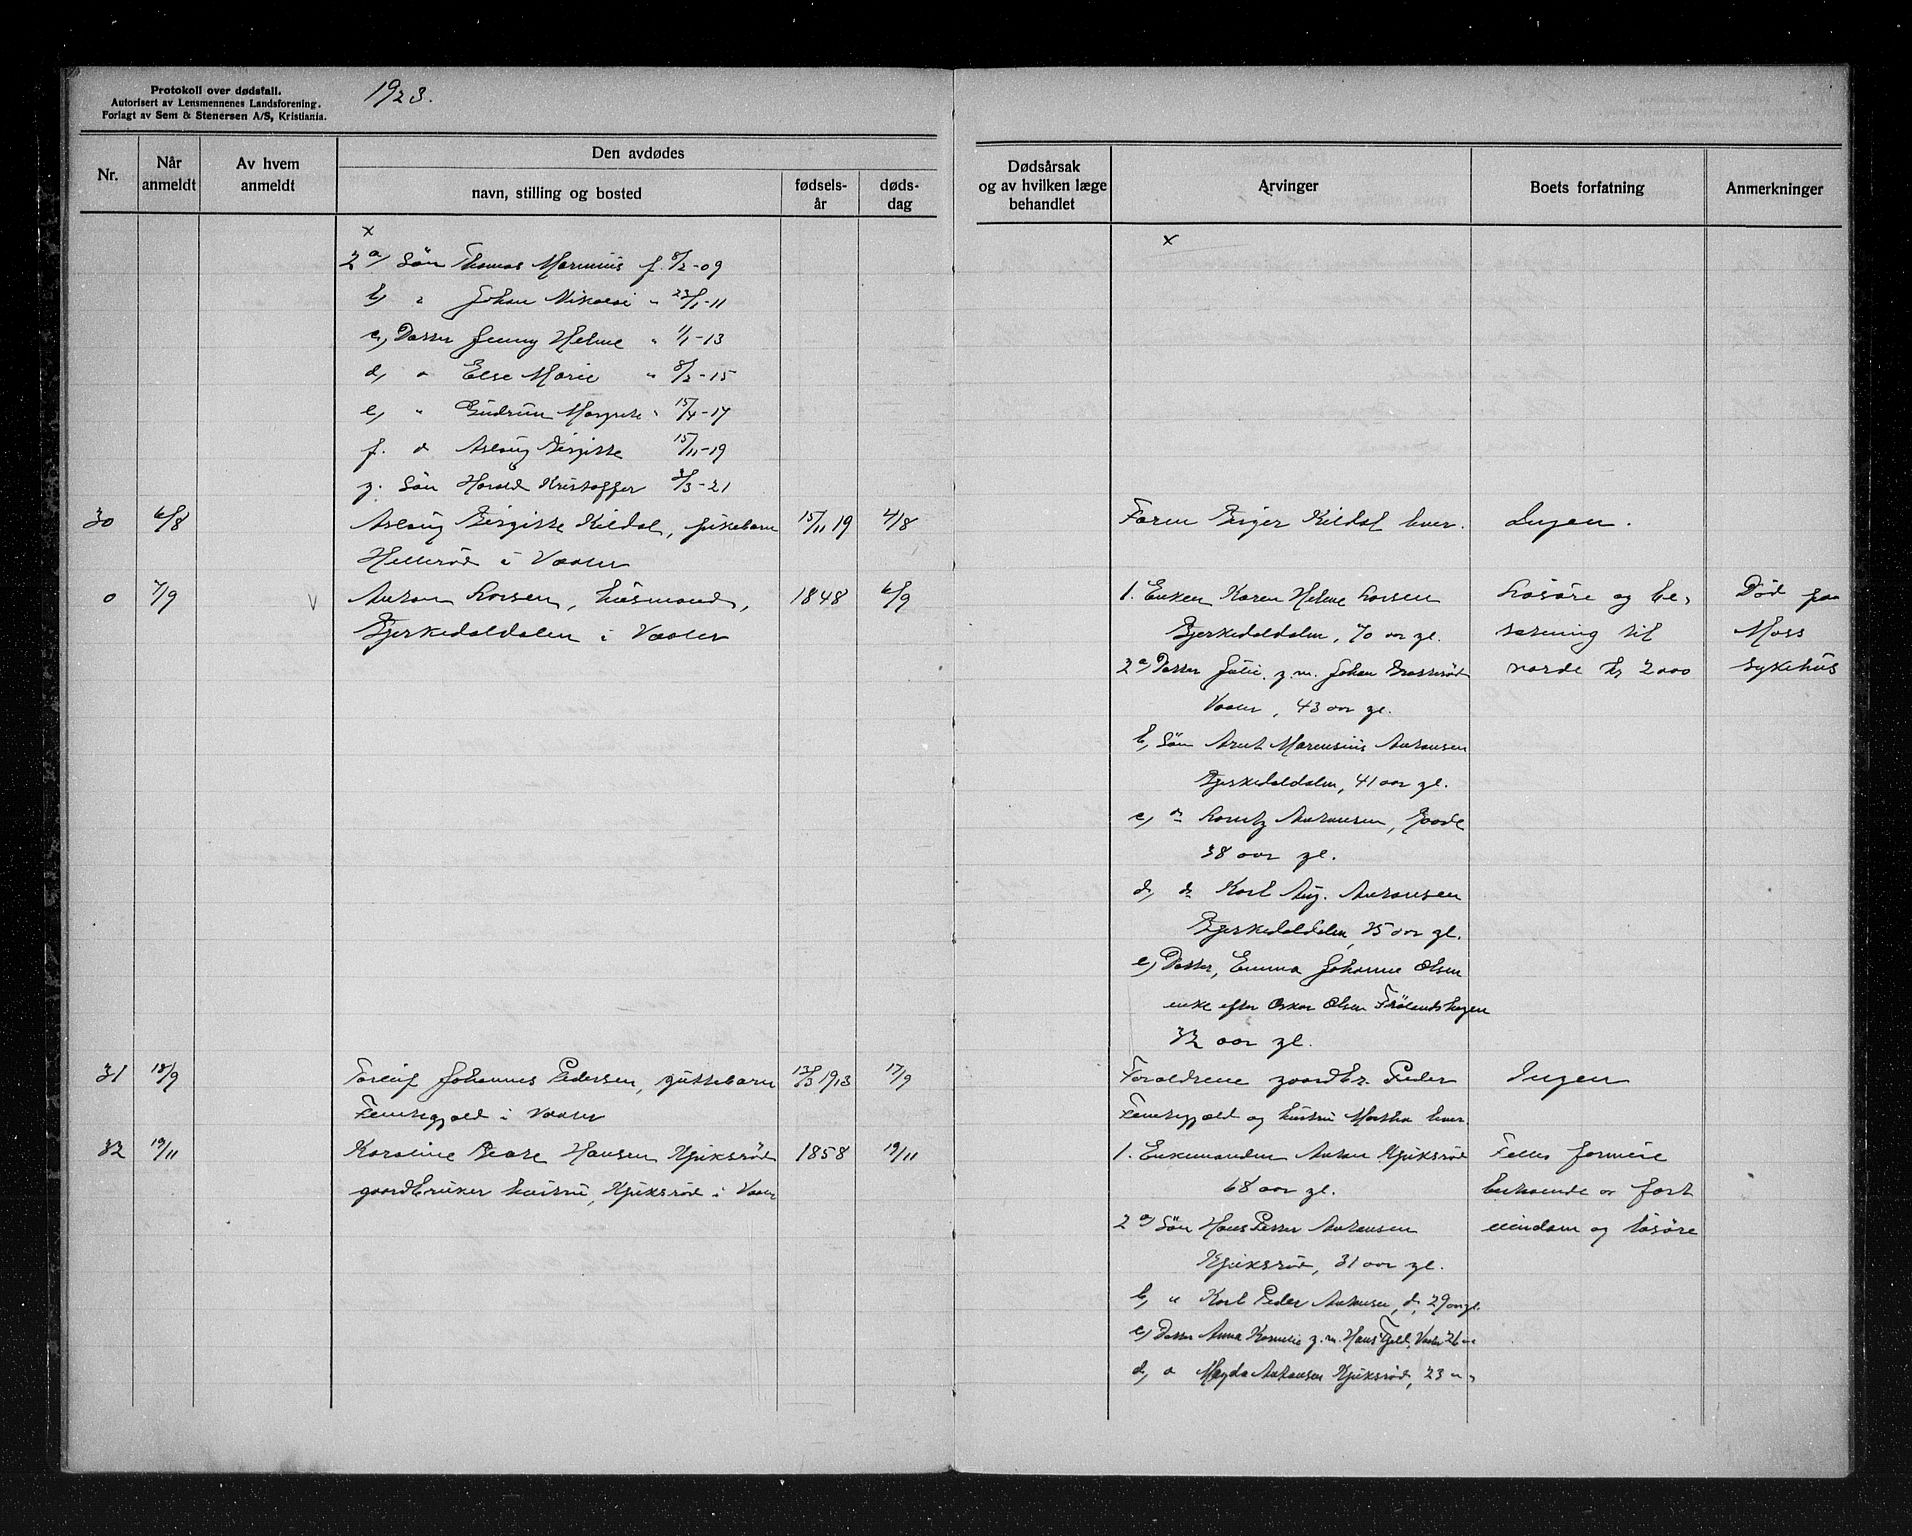 Protokoll over dødsfall.
Autorisert av Lensmennenes Landsforening.
Forlagt av Sem & Stenersen A/S, Kristiania.
1923.
Nr.
Når anmeldt
Av hvem anmeldt
Den avdødes
navn, stilling og bosted
fødsels-år
døds-dag
Dødsårsak og av hvilken læge behandlet
Arvinger
Boets forfatning
Anmerkninger
x
x
2 a) Søn Thomas Marinius f. 8/2-09
b) " Johan Nikolai " 23/1-11
c) Datter Jenny Helene " 1/1-13
d) " Else Marie " 8/2-15
e) " Gudrun Margrete " 15/4-17
f. " Aslaug Birgitte 15/11-19
g. Søn Harald Kristoffer 3/3-21
30 6/8 Aslaug Birgitte Kildal, pikebarn 15/11 19 4/8 Faren Birger Kildal lever. Ingen.
Hellerød i Vaaler
0 7/9 V Anton Larsen, husmand, 1848 6/9 1. Enken Karen Helene Larsen Løsøre og be- Død paa
Bjerkedaldalen i Vaaler Bjerkedaldalen, 70 aar gl. sætning til Moss
2 a Datter Julie, g.m. Johan Vaaler, 43 aar gl. værde kr 2000 sykehus
b) Søn Arnt Marensius Antonsen
Bjerkedaldalen, 41 aar gl.
c) " Lauritz Antonsen,
38 aar gl.
d) " Karl Aug. Antonsen
Bjerkedaldalen, 35 aar gl.
e) Datter, Emma Johanne Olsen
enke efter Oskar Olsen Frølandshagen
32 aar gl.
31 18/9 Torleif Johannes Pedersen, guttebarn 13/3 1913 17/9 Forældrene gaardbr. Peder Ingen
i Vaaler og hustru Martha lever.
32 19/11 Karoline Beate Hansen Kjuksrød 1858 19/11 1. Enkemanden Anton Kjuksrød Felles formue
gaardbruker hustru, Kjuksrød i Vaaler 68 aar gl. bestaaende av fast
2 a) Søn Hans Petter Antonsen eiendom og løsøre
Kjuksrød, 31 aar gl.
b) " Karl Peder Antonsen, d, 29 aar gl.
c) Datter Anna Kornelie g.m. Hans Fjell, Vaaler 26 "
d) " Magda Antonsen Kjuksrød, 23 " "